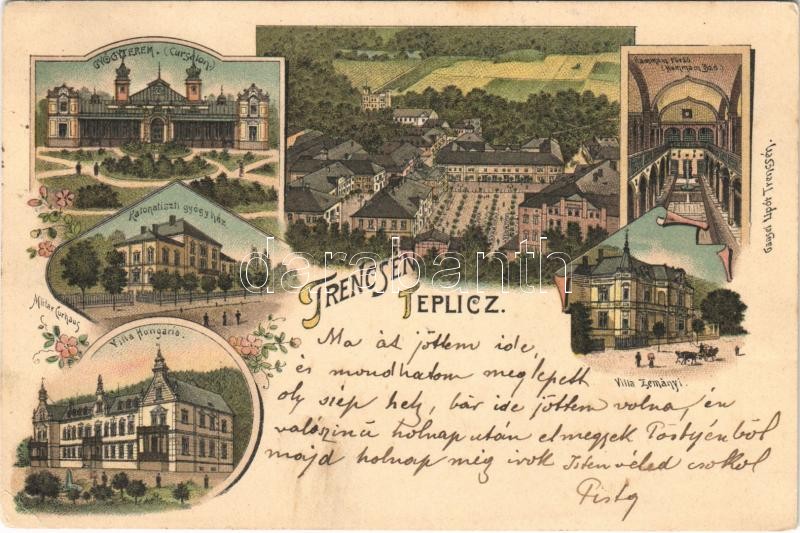 GYÓGYTEREM. (Cursalon)
Hammam fürdő.
(Hammam Bad.)
Gansel Lipót Trencsén.
Katonatiszti gyógyház
Militär Curhaus
TRENCSÉN
TEPLICZ.
Villa Hungaria.
Villa Zemányi.
darabanth
Ma át jöttem ide,
és mondhatom meglepett
oly szép hely, bár ide jöttem volna, én
valószinű holnap után elmegyek Pöstyénből
majd holnap még irok Isten véled csokol
Pista